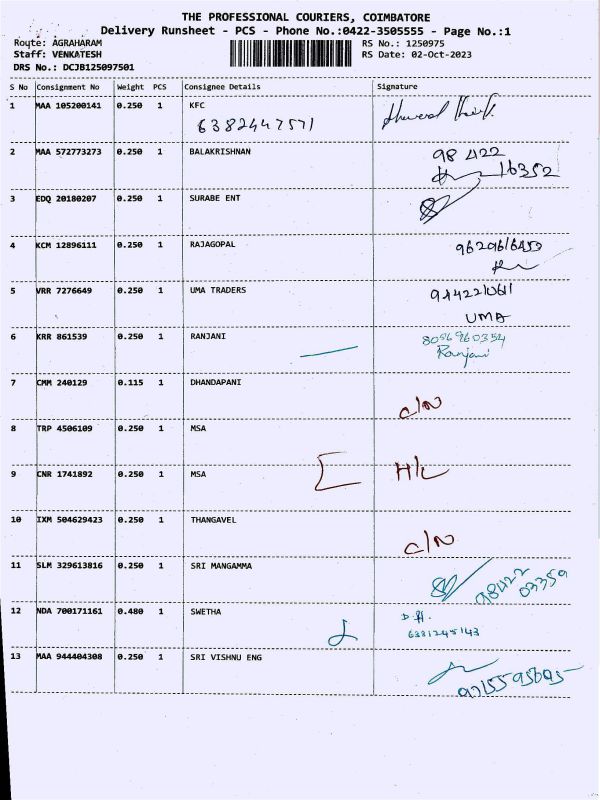 THE PROFESSIONAL COURIERS, COIMBATORE
Delivery Runsheet - PCS - Phone No.:0422-3505555 - Page No.:1
Route: AGRAHARAM RS No.: 1250975
Staff: VENKATESH RS Date: 02-Oct-2023
DRS No.: DCJB125097501
S No Consignment No Weight PCS Consignee Details Signature
1 MAA 105200141 0.250 1 KFC
6382447571
2 MAA 572773273 0.250 1 BALAKRISHNAN 98 422
16352
3 EDQ 20180207 0.250 1 SURABE ENT
4 KCM 12896111 0.250 1 RAJAGOPAL
5 VRR 7276649 0.250 1 UMA TRADERS
UMA
6 KRR 861539 0.250 1 RANJANI 8056960354
Ranjani
7 CMM 240129 0.115 1 DHANDAPANI
C/N
8 TRP 4506109 0.250 1 MSA
9 CNR 1741892 0.250 1 MSA H/L
10 IXM 504629423 0.250 1 THANGAVEL
C/N
11 SLM 329613816 0.250 1 SRI MANGAMMA
98422
03359
12 NDA 700171161 0.480 1 SWETHA
6381245143
13 MAA 944404308 0.250 1 SRI VISHNU ENG
9715595695